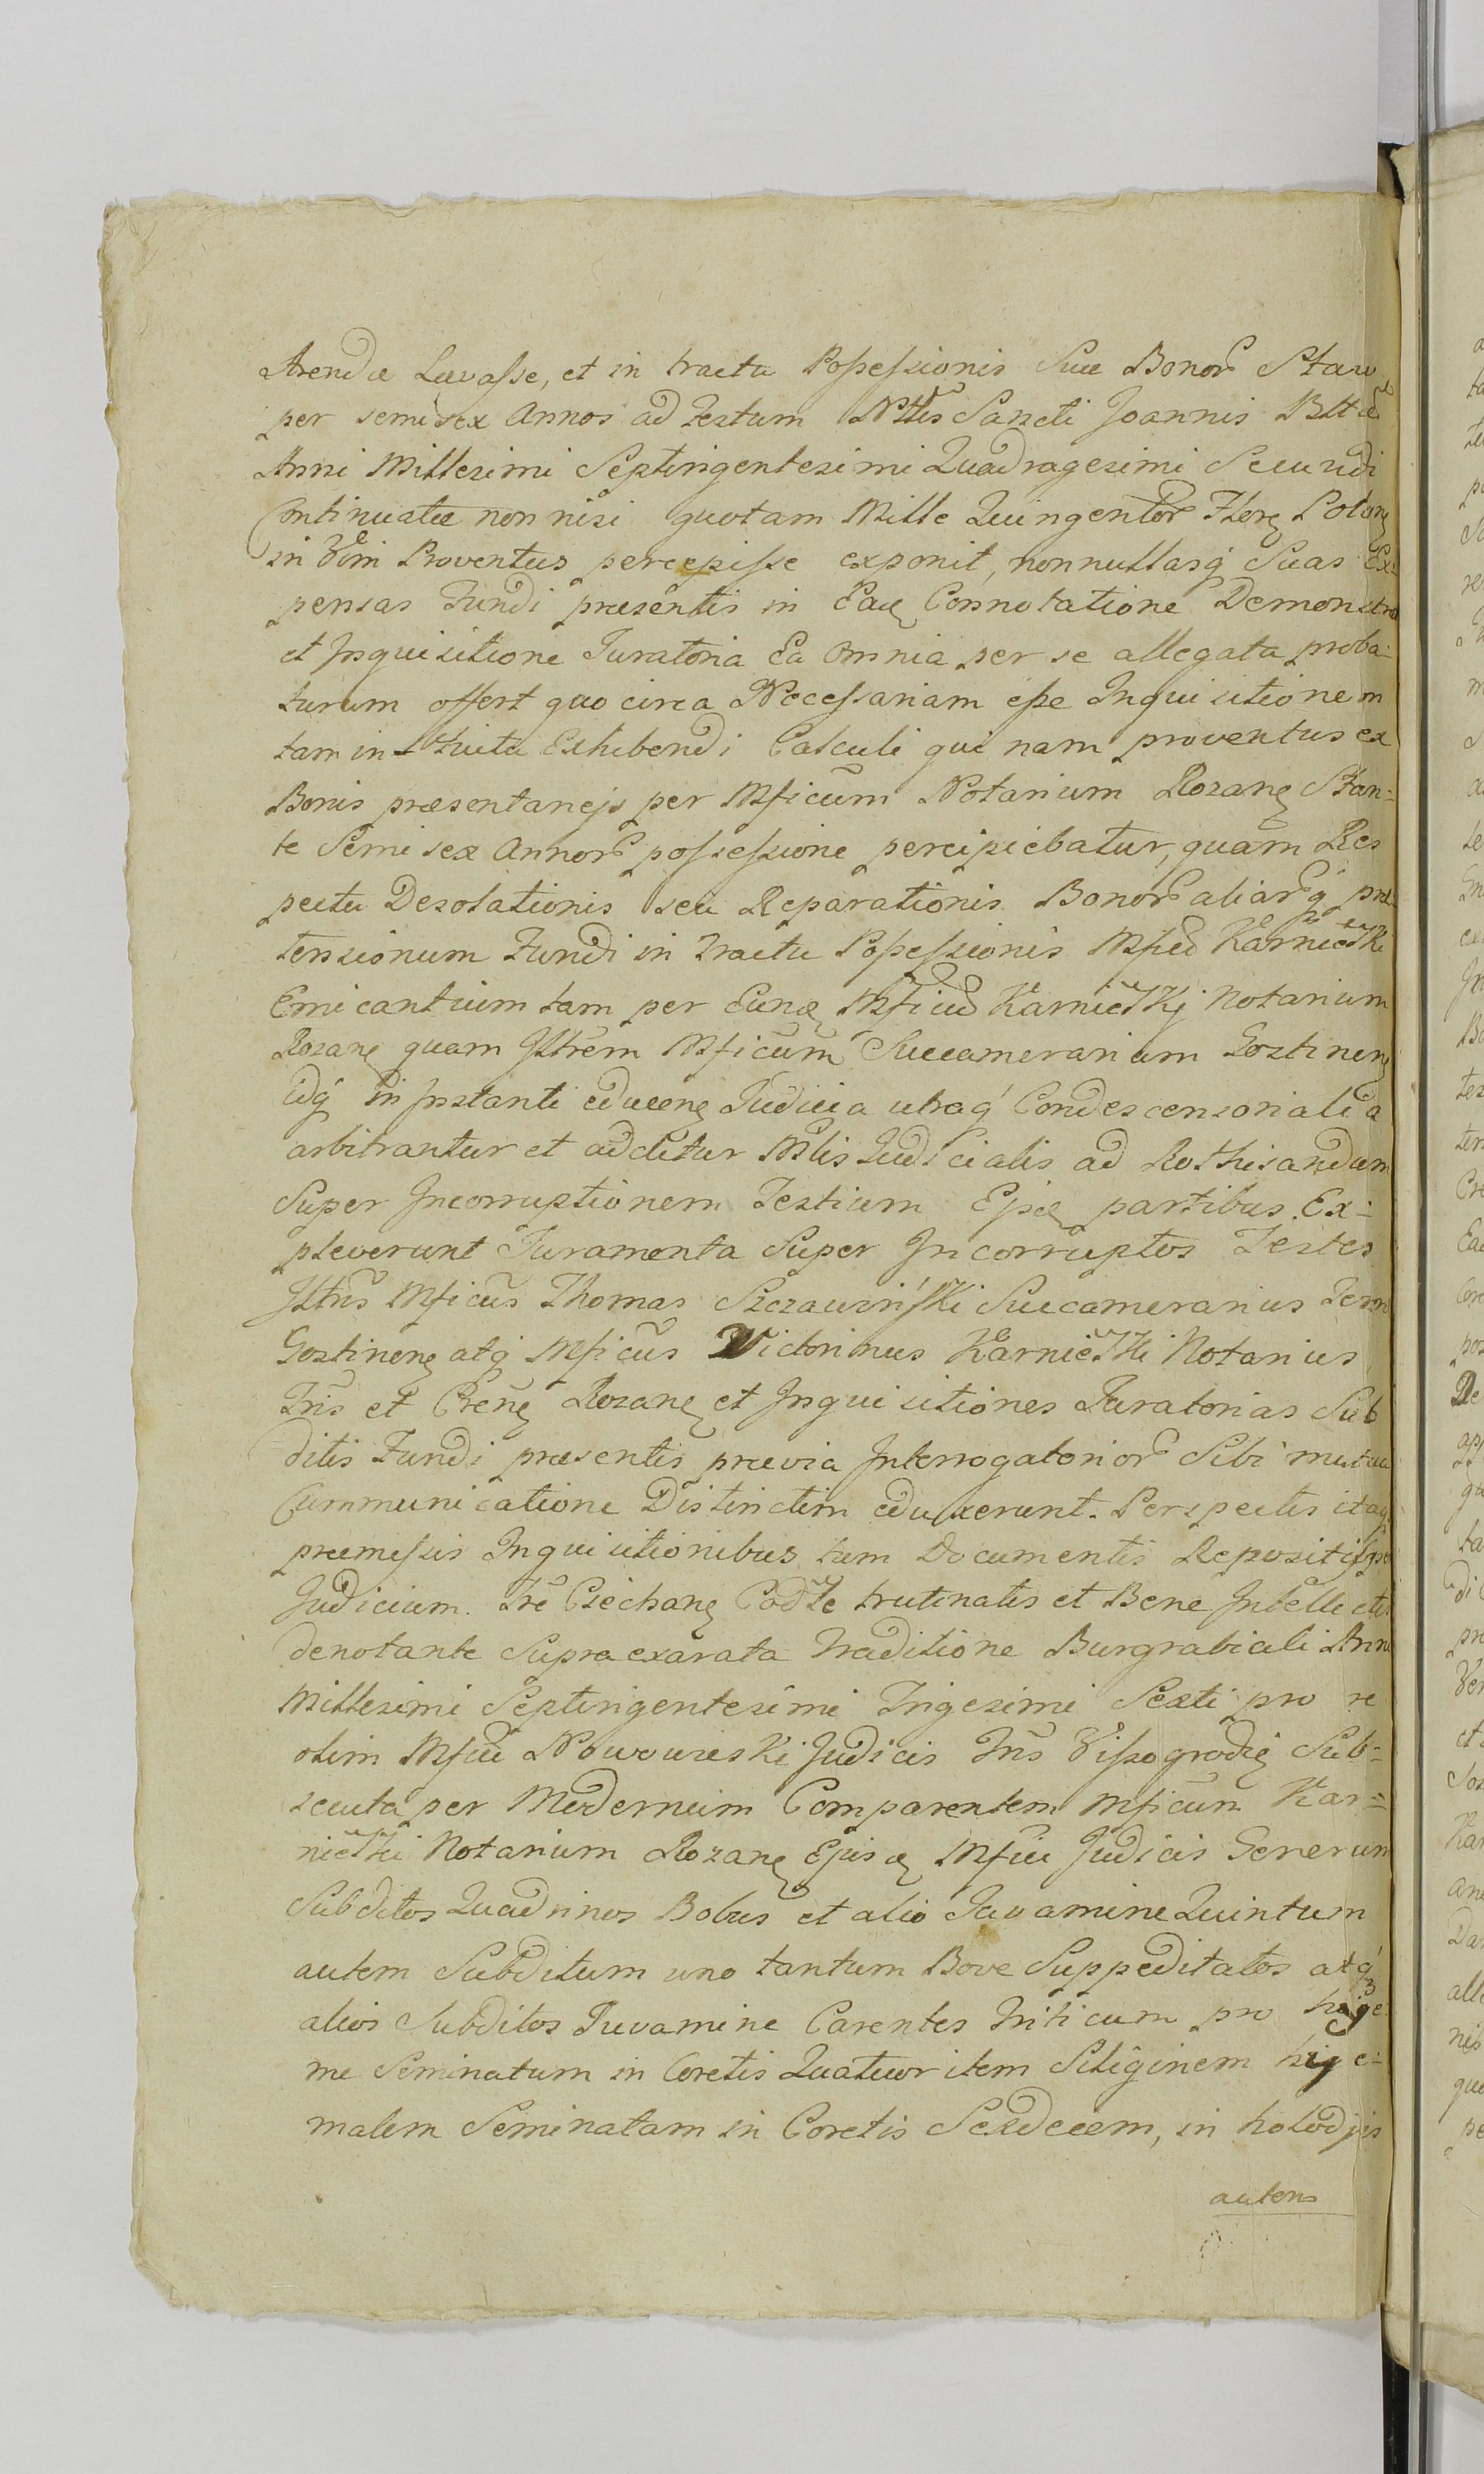 Arendæ Levasse, et in tractu Possessionis Suæ Bonor Staw
per semisex Annos ad Festum Nttis Sancti Joannis Bttæ
Anni Millesimi Septingentesimi Quadragesimi Secundi
Continuatæ non nisi quotam Mille Quingentor Flore Polon
in Vim Proventus percepisse exponit, nonnullasq Suas Ex-
pensas Fundi præsentis in Eadem Connotatione Demonstra
et Inquisitione Juratoria Ea Omnia per se allegata proba-
turum offert quo circa Necessariam esse Inquisitionem
tam in Exhibendi Calculi qui nam proventus ex
Bonis præsentanejs per Mficum Notarium Rozane Stan-
te Semisex Annor possessione percipiebatur, quam Res
pectu Desolationis seu Reparationis Bonor aliarq præ
tensionum Fundi in Tractu Possessionis Mfici Karnicki
Emicantium tam per Eund Mficu Karnickj Notarium
Rozane quam Illrem Mficum Succamerarium Gostinen
idq in Instanti educend Judicia utraq Condescensorialia
arbitrantur et additur Mtlis Judicialis ad Rothisandum
Super Incorruptionem Testium Ejsd partibus. Ex-
pleverunt Juramenta Super Incorruptos Testes
Illtris Mficus Thomas Szczawiński Succamerarius Terræ
Gostinene atq Mficus Victorinus Karnicki Notarius
Tris et Crene Rozane et Inquisitiones Juratorias Sub
ditis Fundi præsentis prævia Interrogatorior Sibi mutua
Cummunicatione Distinctim eduxerunt. Perspectis itaq
præmissis Inquisitionibus tum Documentis Repositis per
Judicium Tre Ciechane trutinatis et Bene Intellectis
denotante Supra exarata Traditione Burgrabiali Anni
Millesimi Septingentesimi Trigesimi Sexti pro re
olim Mfici Nowowieski Judicis Tris Vissogrodie Sub-
secuta per Modernum Comparentem Mficum Kar-
nicki Notarium Rozane Ejusd Mfici Judicis Generum
Subditos Quadrinos Bobus et alio Juvamine Quintum
autem Subditum uno tantum Bove Suppeditatos atq
alios Subditos Juvamine Carentes Triticum pro hije
me Seminatum in Coretis Quatuor item Siliginem hije-
malem Seminatam in Coretis Sexdecem, in holodjis
autem